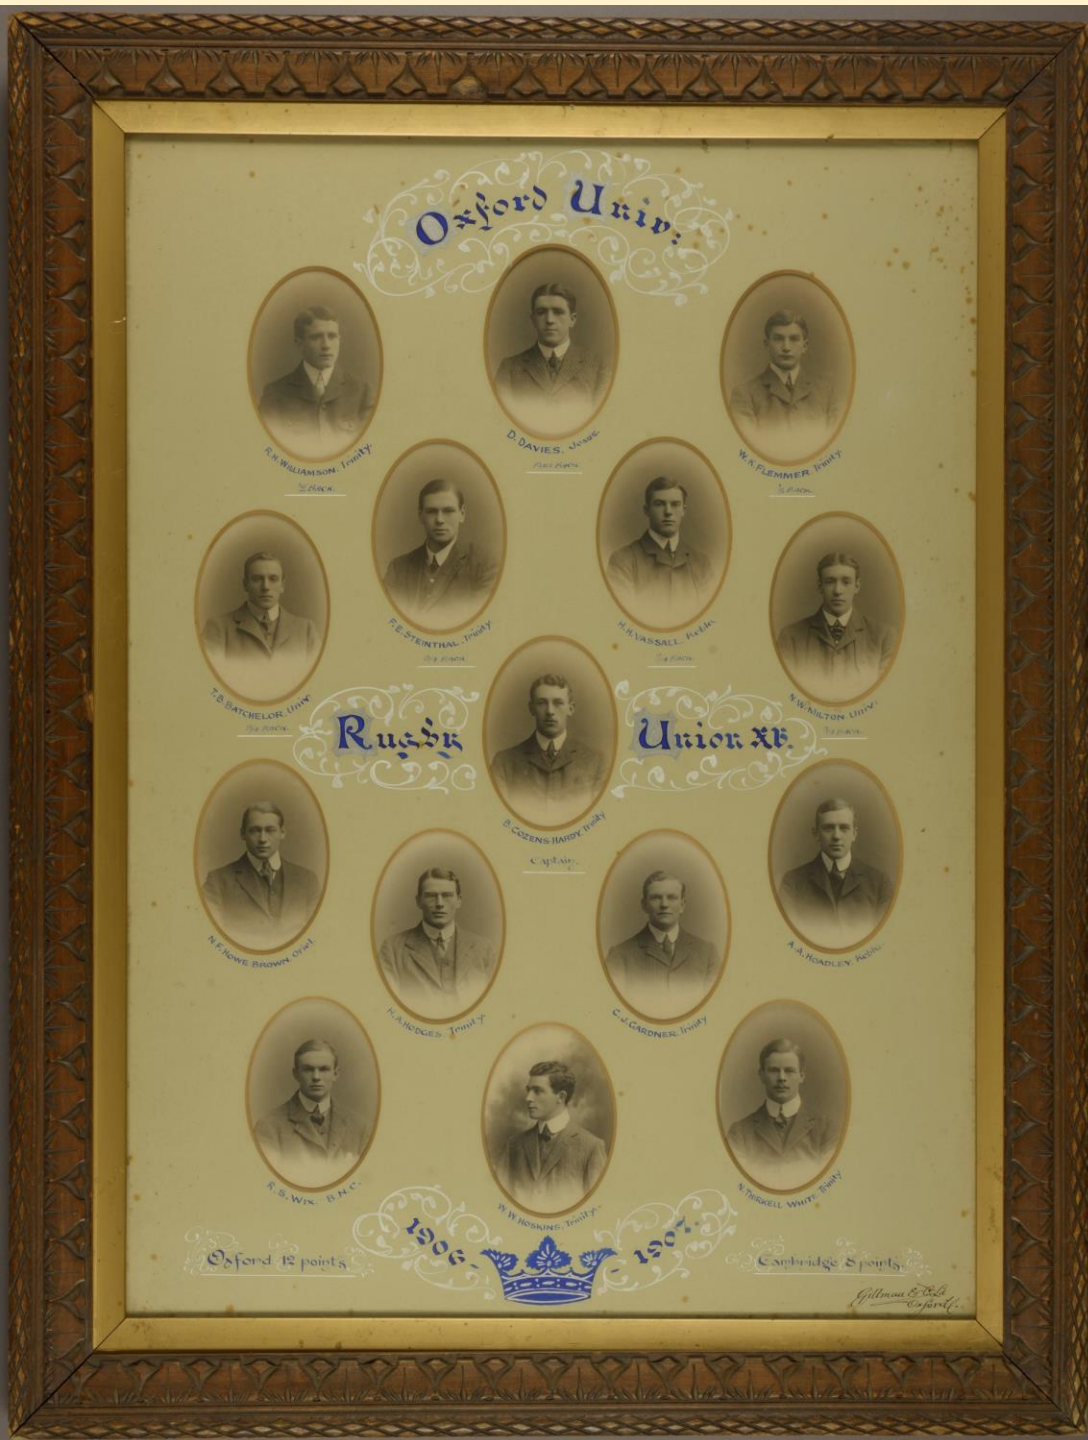 Oxford Univ:
R.H. WILLIAMSON. Trinity.
½ BACK.
D. DAVIES. Jesus.
FULL BACK
W.K. FLEMMER. Trinity.
½ BACK.
F.E. STEINTHAL. Trinity.
¾ BACK.
H.H. VASSALL. Keble.
¾ BACK.
T.B. BATCHELOR. Univ.
¾ BACK.
N.W. MILTON. Univ.
¾ BACK.
Rugby Union XV.
B. COZENS-HARDY. Trinity
Captain.
N.F. HOWE-BROWN. Oriel.
H.A. HODGES. Trinity.
C.J. GARDNER. Trinity
A.A. HOADLEY. Keble.
R.S. WIX. B.N.C.
W.W. HOSKINS. Trinity.
N. THIRKELL WHITE. Trinity
1906 - 1907.
Oxford 12 points
Cambridge 8 points.
Gillman & Co Ld
Oxford.